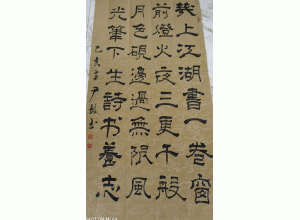 几上江湖書一卷窗
前燈火夜三更千般
月色硯邊過無限風
光筆下生詩书養志